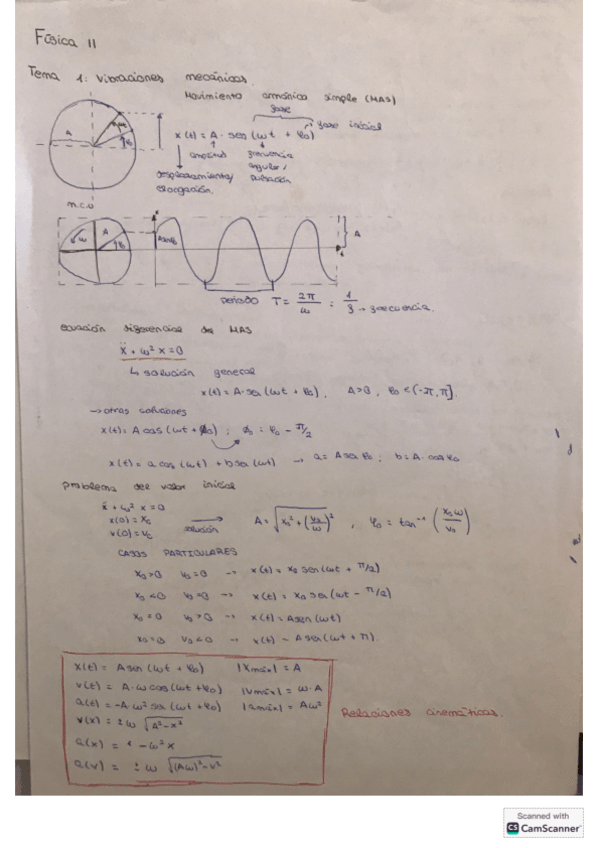 Física II
Tema 1: Vibraciones mecánicas.
Movimiento armónico simple (MAS)
fase
fase inicial
x(t) = A · sen (ωt + φ₀)
A
amplitud
frecuencia angular / pulsación
desplazamiento / elongación.
m.c.u
ω A φ₀
A
t
periodo T = 2π/ω = 1/f → frecuencia.
ecuación diferencial del MAS
ẍ + ω² x = 0
↳ solución general
x(t) = A · sen (ωt + φ₀), A>0, φ₀ ∈ (-π, π].
→ otras soluciones
x(t) = A cos (ωt + ϕ₀) ; ϕ₀ = φ₀ - π/2
x(t) = a cos (ωt) + b sen (ωt) → a = A sen φ₀ ; b = A · cos φ₀
problema del valor inicial
ẍ + ω² x = 0
x(0) = x₀
v(0) = v₀
solución → A = √(x₀² + (v₀/ω)²) , φ₀ = tan⁻¹ (x₀ω/v₀)
CASOS PARTICULARES
x₀>0 v₀=0 → x(t) = x₀ sen (ωt + π/2)
x₀<0 v₀=0 → x(t) = x₀ sen (ωt - π/2)
x₀=0 v₀>0 → x(t) = A sen (ωt)
x₀=0 v₀<0 → x(t) = A sen (ωt + π).
x(t) = A sen (ωt + φ₀) |xmáx| = A
v(t) = A · ω cos (ωt + φ₀) |vmáx| = ω · A
a(t) = -A ω² sen (ωt + φ₀) |amáx| = Aω²
v(x) = ± ω √(A² - x²)
Relaciones cinemáticas.
a(x) = - ω² x
a(v) = ± ω √((Aω)² - v²)
Scanned with
CS CamScanner